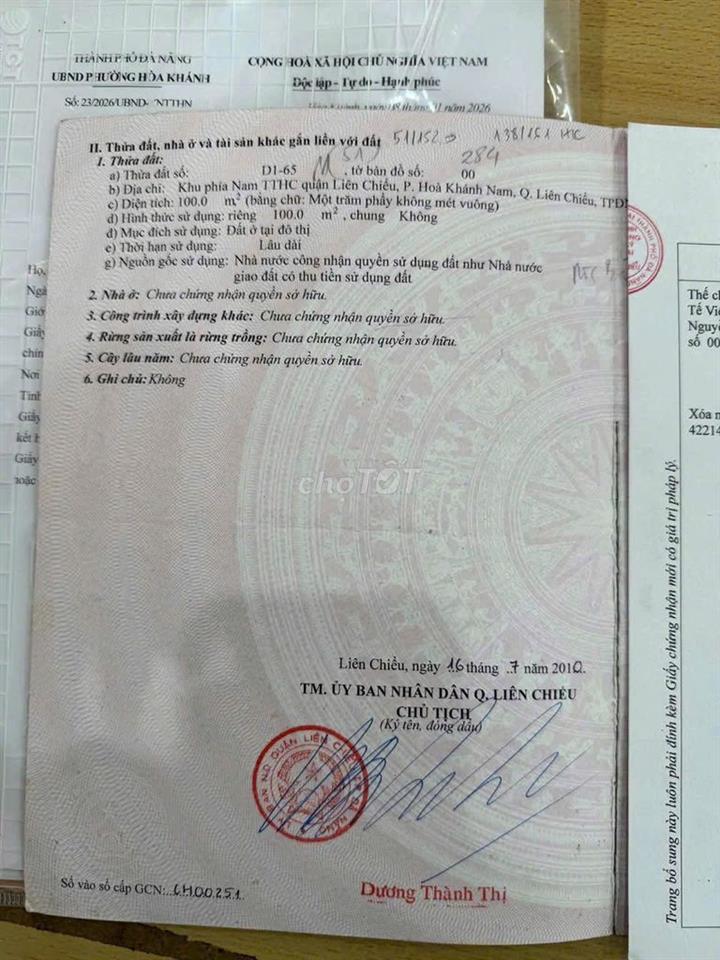 THÀNH PHỐ ĐÀ NẴNG
UBND PHƯỜNG HÒA KHÁNH
CỘNG HOÀ XÃ HỘI CHỦ NGHĨA VIỆT NAM
Độc lập - Tự do - Hạnh phúc
Số: 23/2026/UBND-
2026
II. Thửa đất, nhà ở và tài sản khác gắn liền với đất
138/151 HC
1. Thửa đất:
284
a) Thửa đất số: D1-65 , tờ bản đồ số: 00
b) Địa chỉ: Khu phía Nam TTHC quận Liên Chiểu, P. Hoà Khánh Nam, Q. Liên Chiểu,
c) Diện tích: 100.0 m² (bằng chữ: Một trăm phẩy không mét vuông)
d) Hình thức sử dụng: riêng 100.0 m² , chung Không
đ) Mục đích sử dụng: Đất ở tại đô thị
e) Thời hạn sử dụng: Lâu dài
g) Nguồn gốc sử dụng: Nhà nước công nhận quyền sử dụng đất như Nhà nước
giao đất có thu tiền sử dụng đất
2. Nhà ở: Chưa chứng nhận quyền sở hữu.
3. Công trình xây dựng khác: Chưa chứng nhận quyền sở hữu.
4. Rừng sản xuất là rừng trồng: Chưa chứng nhận quyền sở hữu.
5. Cây lâu năm: Chưa chứng nhận quyền sở hữu.
6. Ghi chú: Không
chợTỐT
Liên Chiểu, ngày 16 tháng 7 năm 2010
TM. ỦY BAN NHÂN DÂN Q. LIÊN CHIỂU
CHỦ TỊCH
(Ký tên, đóng dấu)
Dương Thành Thị
Số vào sổ cấp GCN: CH00251
Họ,
Giấy
chín
Nơi
Tình
Giấy
kết
Giấy
hoặc
Thế
Tế
số 00
Xóa
42214
Trang bổ sung này luôn phải đính kèm Giấy chứng nhận mới có giá trị pháp lý.